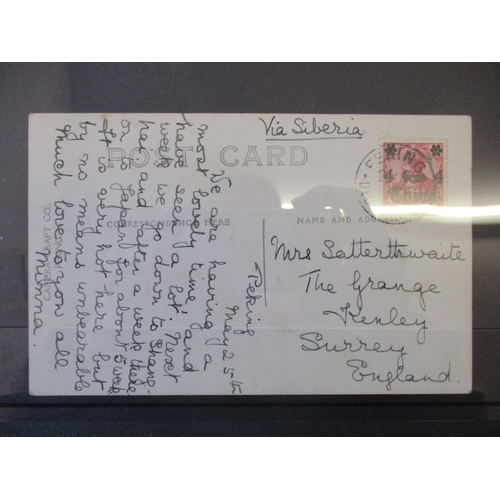 Via Siberia
POST CARD
CORRESPONDENCE HERE
NAME AND ADDRESS
CAMERA CRAFT CO.
PEKING
4 4
China
Peking
May 25th
We are having a
most lovely time and
have seen a lot. Next
week we go down to Shang-
hai and after a week there
on to Japan for about 5 weeks
It is very hot here but
by no means unbearable
Much love to you all
Mrs Satterthwaite
The Grange
Kenley
Surrey
England.